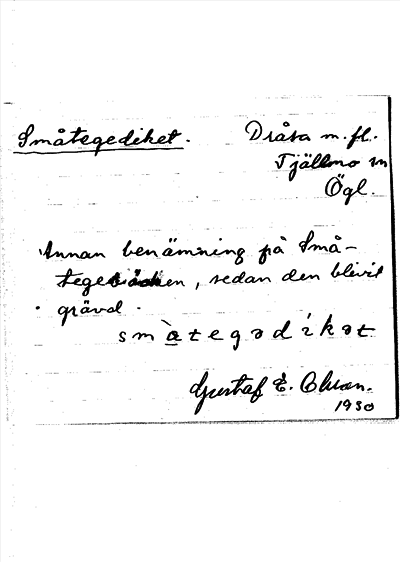 Småtegediket.
Dråsa m.fl.
Tjällmo sn
Ögl.
Annan benämning på Små-
tegebäcken, sedan den blivit
grävd.
småtegədíkət
Gustaf E. Olsson.
1930